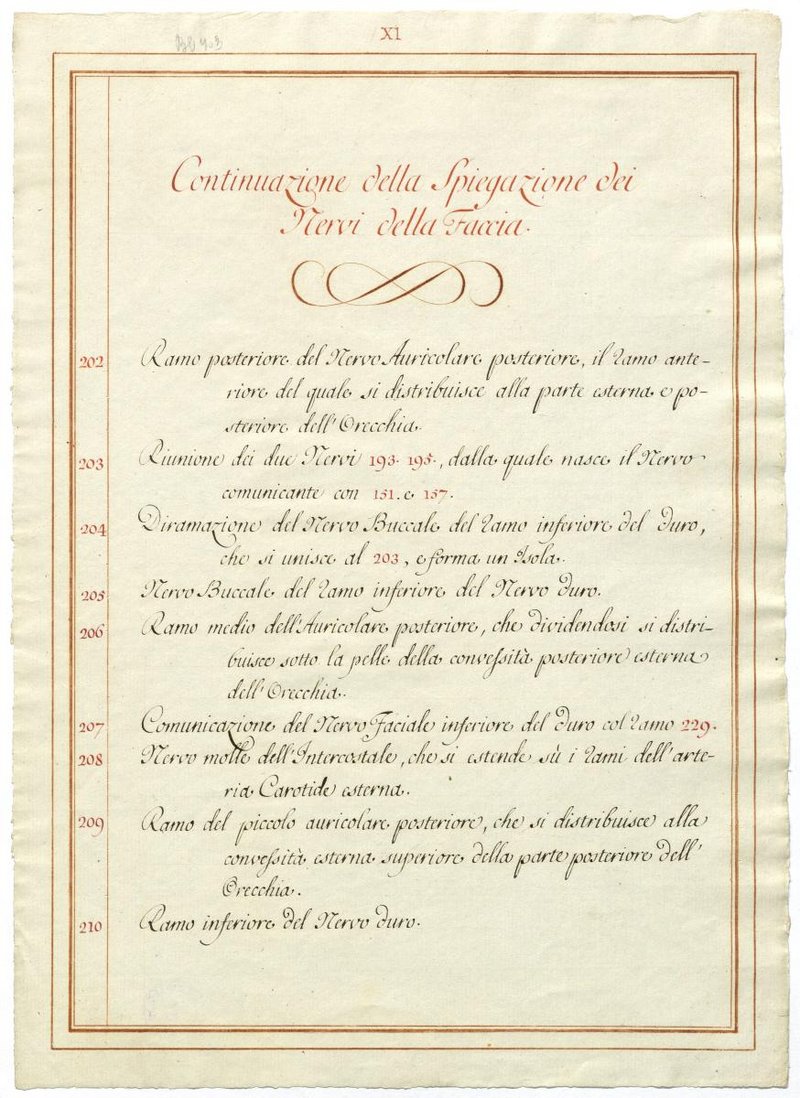 XI
Continuazione della Spiegazione dei
Nervi della Faccia.
202 Ramo posteriore del Nervo Auricolare posteriore, il ramo ante-
riore del quale si distribuisce alla parte esterna e po-
steriore dell'Orecchia.
203 Riunione dei due Nervi 193. 195., dalla quale nasce il Nervo
comunicante con 151. e 157.
204 Diramazione del Nervo Buccale del ramo inferiore del duro,
che si unisce al 203, e forma un Isola.
205 Nervo Buccale del ramo inferiore del Nervo duro.
206 Ramo medio dell'Auricolare posteriore, che dividendosi si distri-
buisce sotto la pelle della convessità posteriore esterna
dell'Orecchia.
207 Comunicazione del Nervo Faciale inferiore del duro col ramo 229.
208 Nervo molle dell'Intercostale, che si estende sù i rami dell'arte-
ria Carotide esterna.
209 Ramo del piccolo auricolare posteriore, che si distribuisce alla
convessità esterna superiore della parte posteriore dell'
Orecchia.
210 Ramo inferiore del Nervo duro.